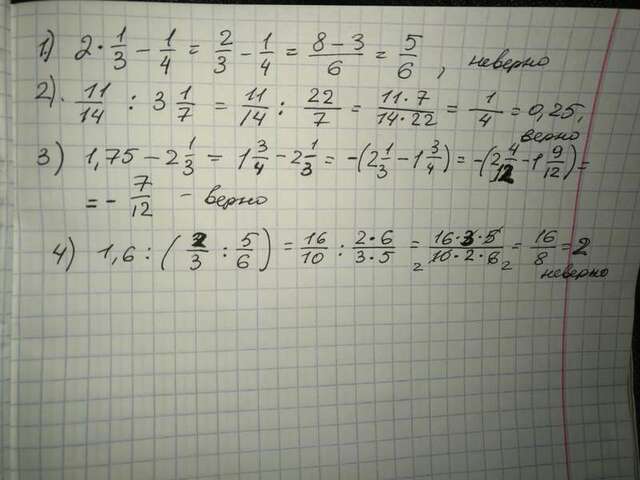 1) 2 · 1/3 − 1/4 = 2/3 − 1/4 = (8 − 3)/6 = 5/6, неверно
2) · 11/14 : 3 1/7 = 11/14 : 22/7 = (11 · 7)/(14 · 22) = 1/4 = 0,25, верно
3) 1,75 − 2 1/3 = 1 3/4 − 2 1/3 = −(2 1/3 − 1 3/4) = −(2 4/12 − 1 9/12) =
= − 7/12 − верно
4) 1,6 : (2/3 : 5/6) = 16/10 : (2 · 6)/(3 · 5) = (16 · 3 · 5)/(10 · 2 · 6) = 16/8 = 2
неверно